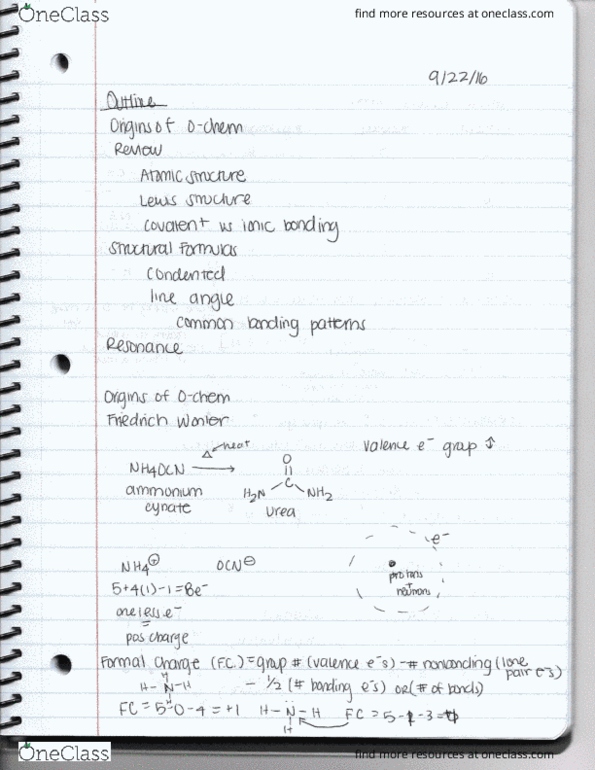 OneClass
find more resources at oneclass.com
9/22/16
Outline
Origins of O-chem
Review
Atomic structure
Lewis structure
Covalent vs ionic bonding
Structural Formulas
Condented
line angle
common bonding patterns
Resonance
Origins of O-chem
Friedrich Wohler
Δ heat
valence e⁻ group ↕
NH4OCN →
ammonium
cynate
O
||
C
H₂N NH₂
Urea
NH4⊕ OCN⊖
5+4(1)-1=8e⁻
one less e⁻
=
pos charge
e⁻
protons
+
neutrons
Formal Charge (F.C.) = group # (valence e⁻s) - # nonbonding (lone pair e⁻s)
- ½ (# bonding e⁻s) or (# of bonds)
H
H-N-H
H
FC = 5-0-4 = +1
H-N-H
H
FC = 5-
-3=
OneClass
find more resources at oneclass.com